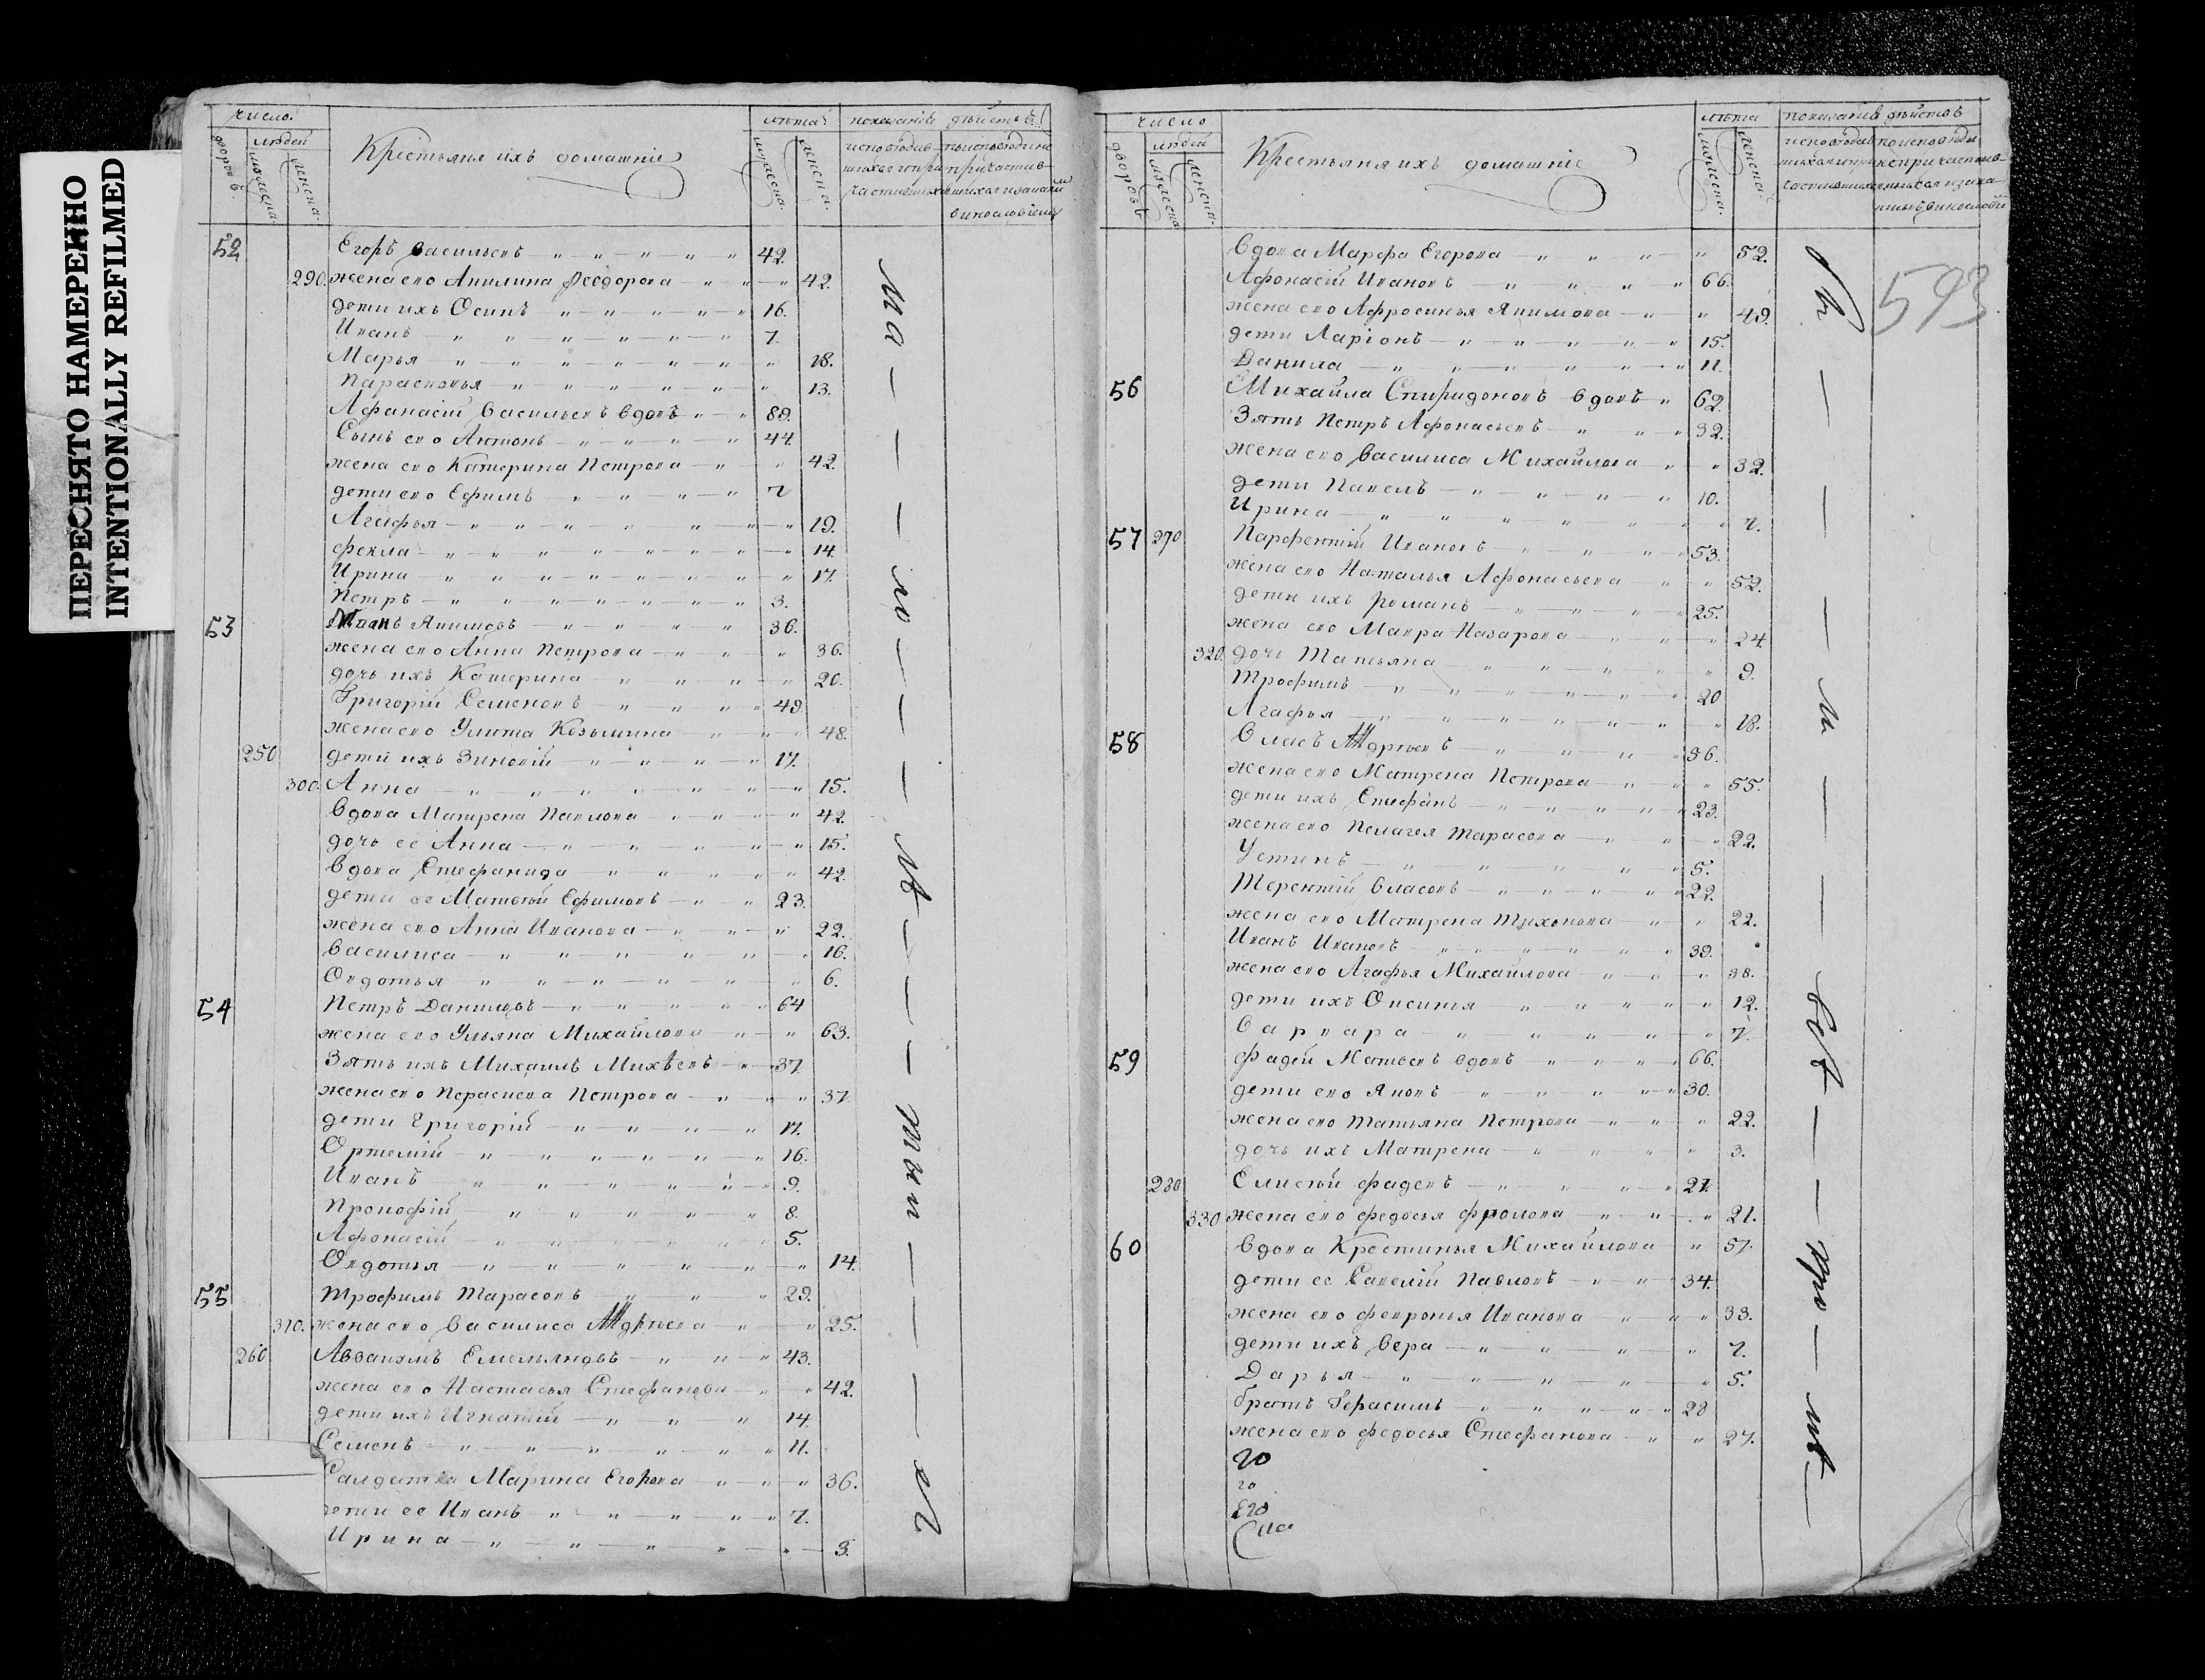 ПЕРЕСНЯТО НАМЕРЕННО
INTENTIONALLY REFILMED
число лѣта показаніе дѣйствъ
дворовъ людей мужеска женска Крестьяня ихъ домашніе мужеска женска
52 Егоръ Васильевъ 42.
290. жена его Акилина Феодорова 42.
дети ихъ Осипъ 16.
Иванъ 7.
Марья 18.
Парасковья 13.
Афанасій Васильевъ вдовъ 89.
Сынъ его Антонъ 44.
жена его Катерина Петрова 42.
дети его Ефимъ 7
Агафья 19.
Фекла 14
Ирина 17.
Петръ 3.
53 Якимовъ 36.
жена его Анна Петрова 36.
дочь ихъ Катерина 20.
Григорій Семеновъ 49.
жена его Улита Козьмина 48.
250 дети ихъ Зиновій 17.
300. Анна 15.
Вдова Матрена Павлова 42.
дочь ее Анна 15.
Вдова Стефанида 42.
дети ее Матвѣй Ефимовъ 23.
жена его Анна Иванова 22.
Василиса 16.
Овдотья 6.
54 Петръ Даниловъ 64
жена его Ульяна Михайлова 63.
Зять ихъ Михаилъ Михѣевъ 37.
жена его Пераскева Петрова 37
дети Григорій 17.
Ортемій 16.
Иванъ 9.
Прокофій 8.
Афонасій 5.
Овдотья 14.
55 Трофимъ Тарасовъ 29.
310. жена его Василиса 25.
260 Авваkумъ Емельяновъ 43.
жена его Настасья Стефанова 42.
дети ихъ Игнатій 14.
Семенъ 11.
Салдатка Марина Егорова 36.
дети ее Иванъ 7.
Ирина 3.
число лѣта показаніе дѣйствъ
дворовъ людей мужеска женска Крестьяня ихъ домашніе мужеска женска
593
Вдова Марфа Егорова 52.
Афонасій Ивановъ 66.
жена его Афросинья Якимова 49.
дети Ларіонъ 15.
Данила 11.
56 Михайла Спиридоновъ вдовъ 62.
Зять Петръ Афонасьевъ 32.
жена его Василиса Михайлова 32.
дети Павелъ 10.
Ирина 7.
57 270 Парфентій Ивановъ 53.
жена его Наталья Афонасьева 52.
дети ихъ Романъ 25.
жена его Мавра Назарова 24.
320. дочь Татьяна 9.
Трофимъ 20
Агафья 18.
58 Власъ 56.
жена его Матрена Петрова 55.
дети ихъ Стефанъ 23.
жена его Пелагея Тарасова 22.
Устинъ 5.
Терентій Власовъ 22.
жена его Матрена Тихонова 22.
Иванъ Ивановъ 39.
жена его Агафья Михайлова 38.
дети ихъ Оксинья 12.
Варвара 7.
59 Фадей Матвеевъ вдовъ 66.
дети его Яковъ 30.
жена его Татьяна Петрова 22.
дочь ихъ Матрена 3.
280 Елисѣй Фадеевъ 21.
330 жена его Федосья Фролова 21.
60 Вдова Крестинья Михайлова 57.
дети ее Савелій Павловъ 34.
жена его Февронья Иванова 33.
дети ихъ Вера 7.
Дарья 5.
братъ Герасимъ 28
жена его Федосья Стефанова 27.